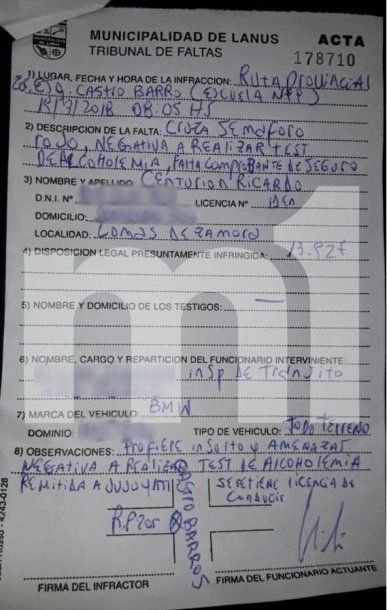 MUNICIPALIDAD DE LANUS
TRIBUNAL DE FALTAS
ACTA
178710
1) LUGAR, FECHA Y HORA DE LA INFRACCION: RUTA PROVINCIAL
ESQ. CASTRO BARRO (ESCUELA Nº9)
2018 08:05 HS
2) DESCRIPCION DE LA FALTA: CRUZA SEMAFORO
ROJO, NEGATIVA A REALIZAR TEST
DE ALCOHOLEMIA, FALTA COMPROBANTE DE SEGURO
3) NOMBRE Y APELLIDO: CENTURION RICARDO
D.N.I. Nº LICENCIA Nº IDEM
DOMICILIO:
LOCALIDAD: LOMAS DE ZAMORA
4) DISPOSICION LEGAL PRESUNTAMENTE INFRINGIDA: 13.927
m1
5) NOMBRE Y DOMICILIO DE LOS TESTIGOS: —
6) NOMBRE, CARGO Y REPARTICION DEL FUNCIONARIO INTERVINIENTE:
insp de Tránsito
7) MARCA DEL VEHICULO: BMW
DOMINIO: TIPO DE VEHICULO: TODO TERRENO
8) OBSERVACIONES: PROFIERE INSULTO Y AMENAZAS
NEGATIVA A REALIZAR TEST DE ALCOHOLEMIA
REMITIDA A
SE RETIENE LICENCIA DE
CONDUCIR
CASTRO BARROS
FIRMA DEL INFRACTOR
FIRMA DEL FUNCIONARIO ACTUANTE
4243-0128